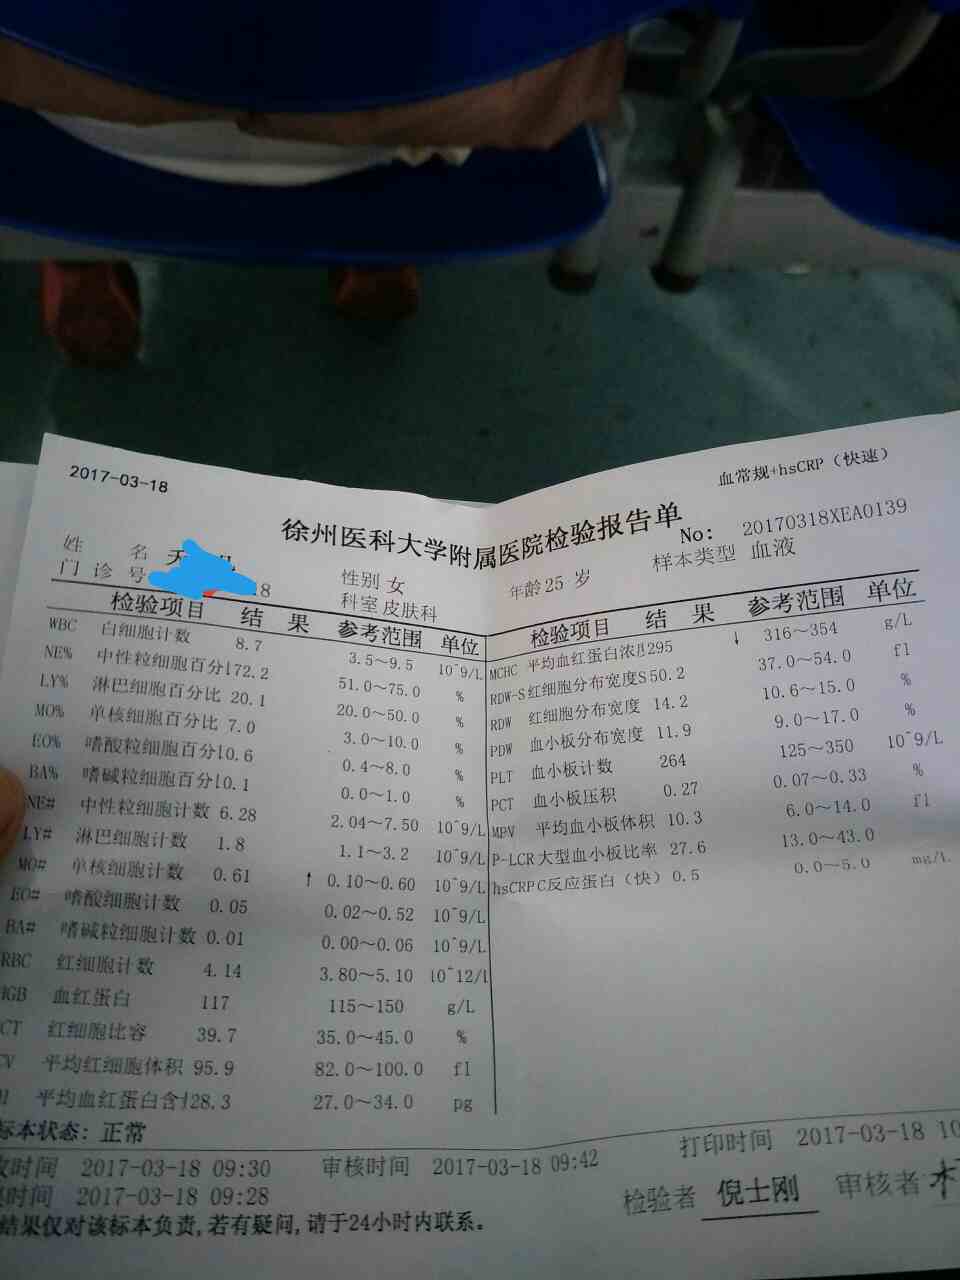 2017-03-18
血常规+hsCRP（快速）
徐州医科大学附属医院检验报告单
No: 20170318XEA0139
姓 名 性别 女 年龄 25 岁 样本类型 血液
门 诊 号 18 科室 皮肤科
检验项目 结 果 参考范围 单位
WBC 白细胞计数 8.7 3.5～9.5 10^9/L
NE% 中性粒细胞百分比 72.2 51.0～75.0 %
LY% 淋巴细胞百分比 20.1 20.0～50.0 %
MO% 单核细胞百分比 7.0 3.0～10.0 %
EO% 嗜酸粒细胞百分比 0.6 0.4～8.0 %
BA% 嗜碱粒细胞百分比 0.1 0.0～1.0 %
NE# 中性粒细胞计数 6.28 2.04～7.50 10^9/L
LY# 淋巴细胞计数 1.8 1.1～3.2 10^9/L
MO# 单核细胞计数 0.61 ↑ 0.10～0.60 10^9/L
EO# 嗜酸细胞计数 0.05 0.02～0.52 10^9/L
BA# 嗜碱细胞计数 0.01 0.00～0.06 10^9/L
RBC 红细胞计数 4.14 3.80～5.10 10^12/L
HGB 血红蛋白 117 115～150 g/L
CT 红细胞比容 39.7 35.0～45.0 %
CV 平均红细胞体积 95.9 82.0～100.0 fl
平均血红蛋白含 28.3 27.0～34.0 pg
检验项目 结 果 参考范围 单位
MCHC 平均血红蛋白浓 295 ↓ 316～354 g/L
RDW-S 红细胞分布宽度S 50.2 37.0～54.0 fl
RDW 红细胞分布宽度 14.2 10.6～15.0 %
PDW 血小板分布宽度 11.9 9.0～17.0 %
PLT 血小板计数 264 125～350 10^9/L
PCT 血小板压积 0.27 0.07～0.33 %
MPV 平均血小板体积 10.3 6.0～14.0 fl
P-LCR 大型血小板比率 27.6 13.0～43.0
hsCRP C反应蛋白（快） 0.5 0.0～5.0 mg/L
标本状态：正常
时间 2017-03-18 09:30 审核时间 2017-03-18 09:42 打印时间 2017-03-18 10
时间 2017-03-18 09:28 检验者 倪士刚 审核者
结果仅对该标本负责,若有疑问,请于24小时内联系。